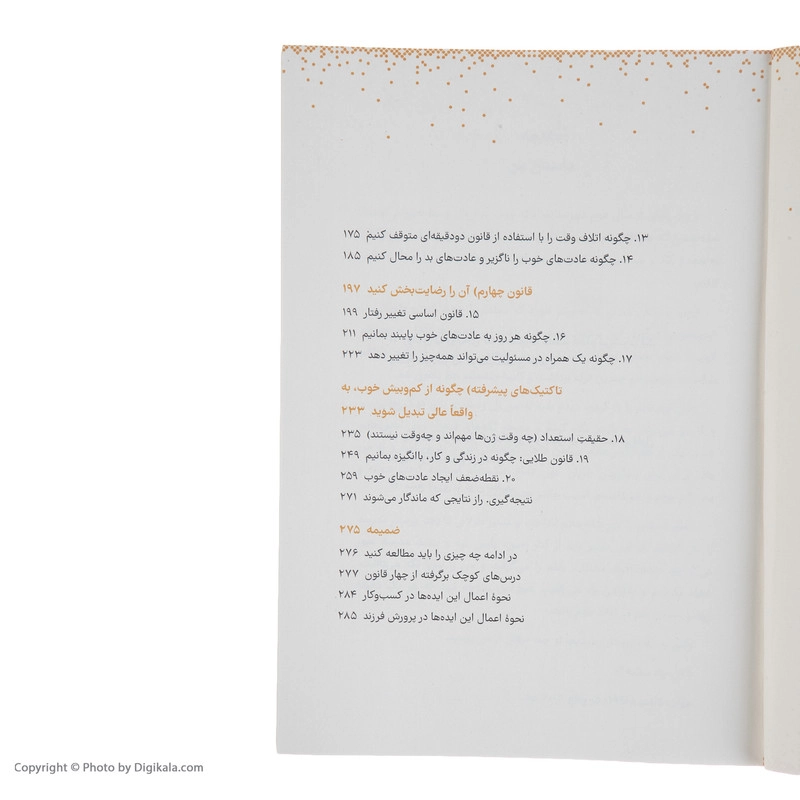 ۱۳. چگونه اتلاف وقت را با استفاده از قانون دودقیقه‌ای متوقف کنیم ۱۷۵
۱۴. چگونه عادت‌های خوب را ناگزیر و عادت‌های بد را محال کنیم ۱۸۵
قانون چهارم) آن را رضایت‌بخش کنید ۱۹۷
۱۵. قانون اساسی تغییر رفتار ۱۹۹
۱۶. چگونه هر روز به عادت‌های خوب پایبند بمانیم ۲۱۱
۱۷. چگونه یک همراه در مسئولیت می‌تواند همه‌چیز را تغییر دهد ۲۲۳
تاکتیک‌های پیشرفته) چگونه از کم‌وبیش خوب، به
واقعاً عالی تبدیل شوید ۲۳۳
۱۸. حقیقتِ استعداد (چه وقت ژن‌ها مهم‌اند و چه‌وقت نیستند) ۲۳۵
۱۹. قانون طلایی: چگونه در زندگی و کار، باانگیزه بمانیم ۲۴۹
۲۰. نقطه‌ضعف ایجاد عادت‌های خوب ۲۵۹
نتیجه‌گیری. راز نتایجی که ماندگار می‌شوند ۲۷۱
ضمیمه ۲۷۵
در ادامه چه چیزی را باید مطالعه کنید ۲۷۶
درس‌های کوچک برگرفته از چهار قانون ۲۷۷
نحوهٔ اعمال این ایده‌ها در کسب‌وکار ۲۸۴
نحوهٔ اعمال این ایده‌ها در پرورش فرزند ۲۸۵
Copyright © Photo by Digikala.com